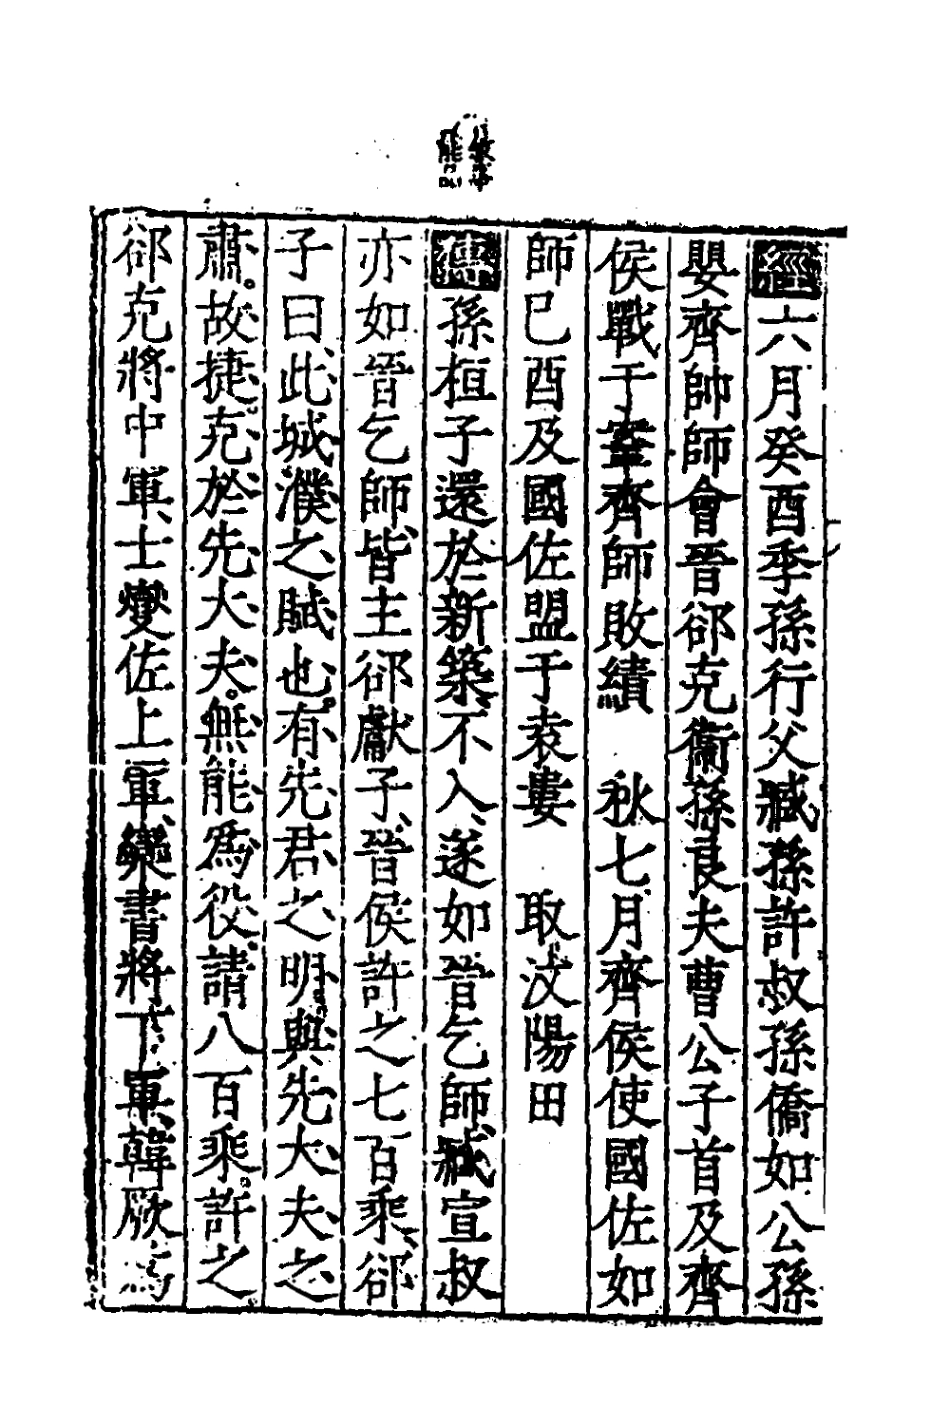 經六月癸酉季孫行父臧孫許叔孫僑如公孫
嬰齊帥師會晉郤克衞孫良夫曹公子首及齊
侯戰于鞌齊師敗績　秋七月齊侯使國佐如
師己酉及國佐盟于袁婁　取汶陽田
傳孫桓子還於新築不入遂如晉乞師臧宣叔
亦如晉乞師皆主郤獻子晉侯許之七百乘郤
子曰此城濮之賦也有先君之明與先大夫之
肅故捷克於先大夫無能爲役請八百乘許之
郤克將中軍士燮佐上軍欒書將下軍韓厥爲